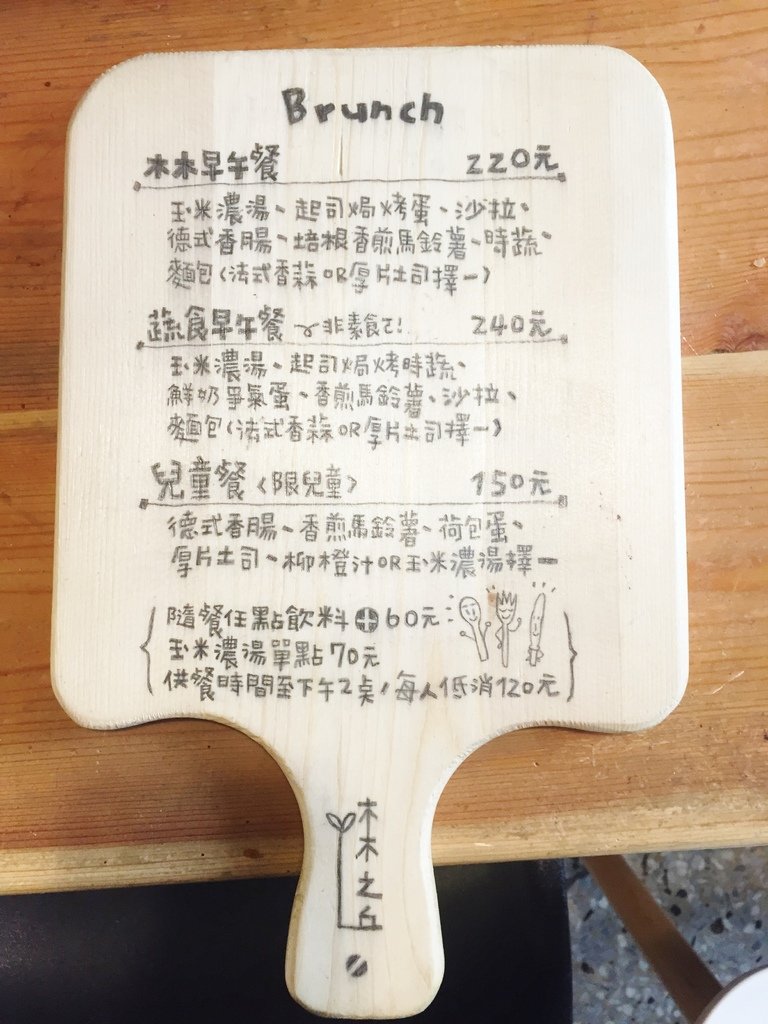 Brunch
木木早午餐 220元
玉米濃湯、起司焗烤蛋、沙拉、
德式香腸、培根香煎馬鈴薯、時蔬、
麵包(法式香蒜OR厚片土司擇一)
蔬食早午餐 ~非素食ㄛ! 240元
玉米濃湯、起司焗烤時蔬、
鮮奶爭氣蛋、香煎馬鈴薯、沙拉、
麵包(法式香蒜OR厚片土司擇一)
兒童餐〈限兒童〉 150元
德式香腸、香煎馬鈴薯、荷包蛋、
厚片土司、柳橙汁OR玉米濃湯擇一
隨餐任點飲料+60元
玉米濃湯單點70元
供餐時間至下午2點!每人低消120元
木木之丘